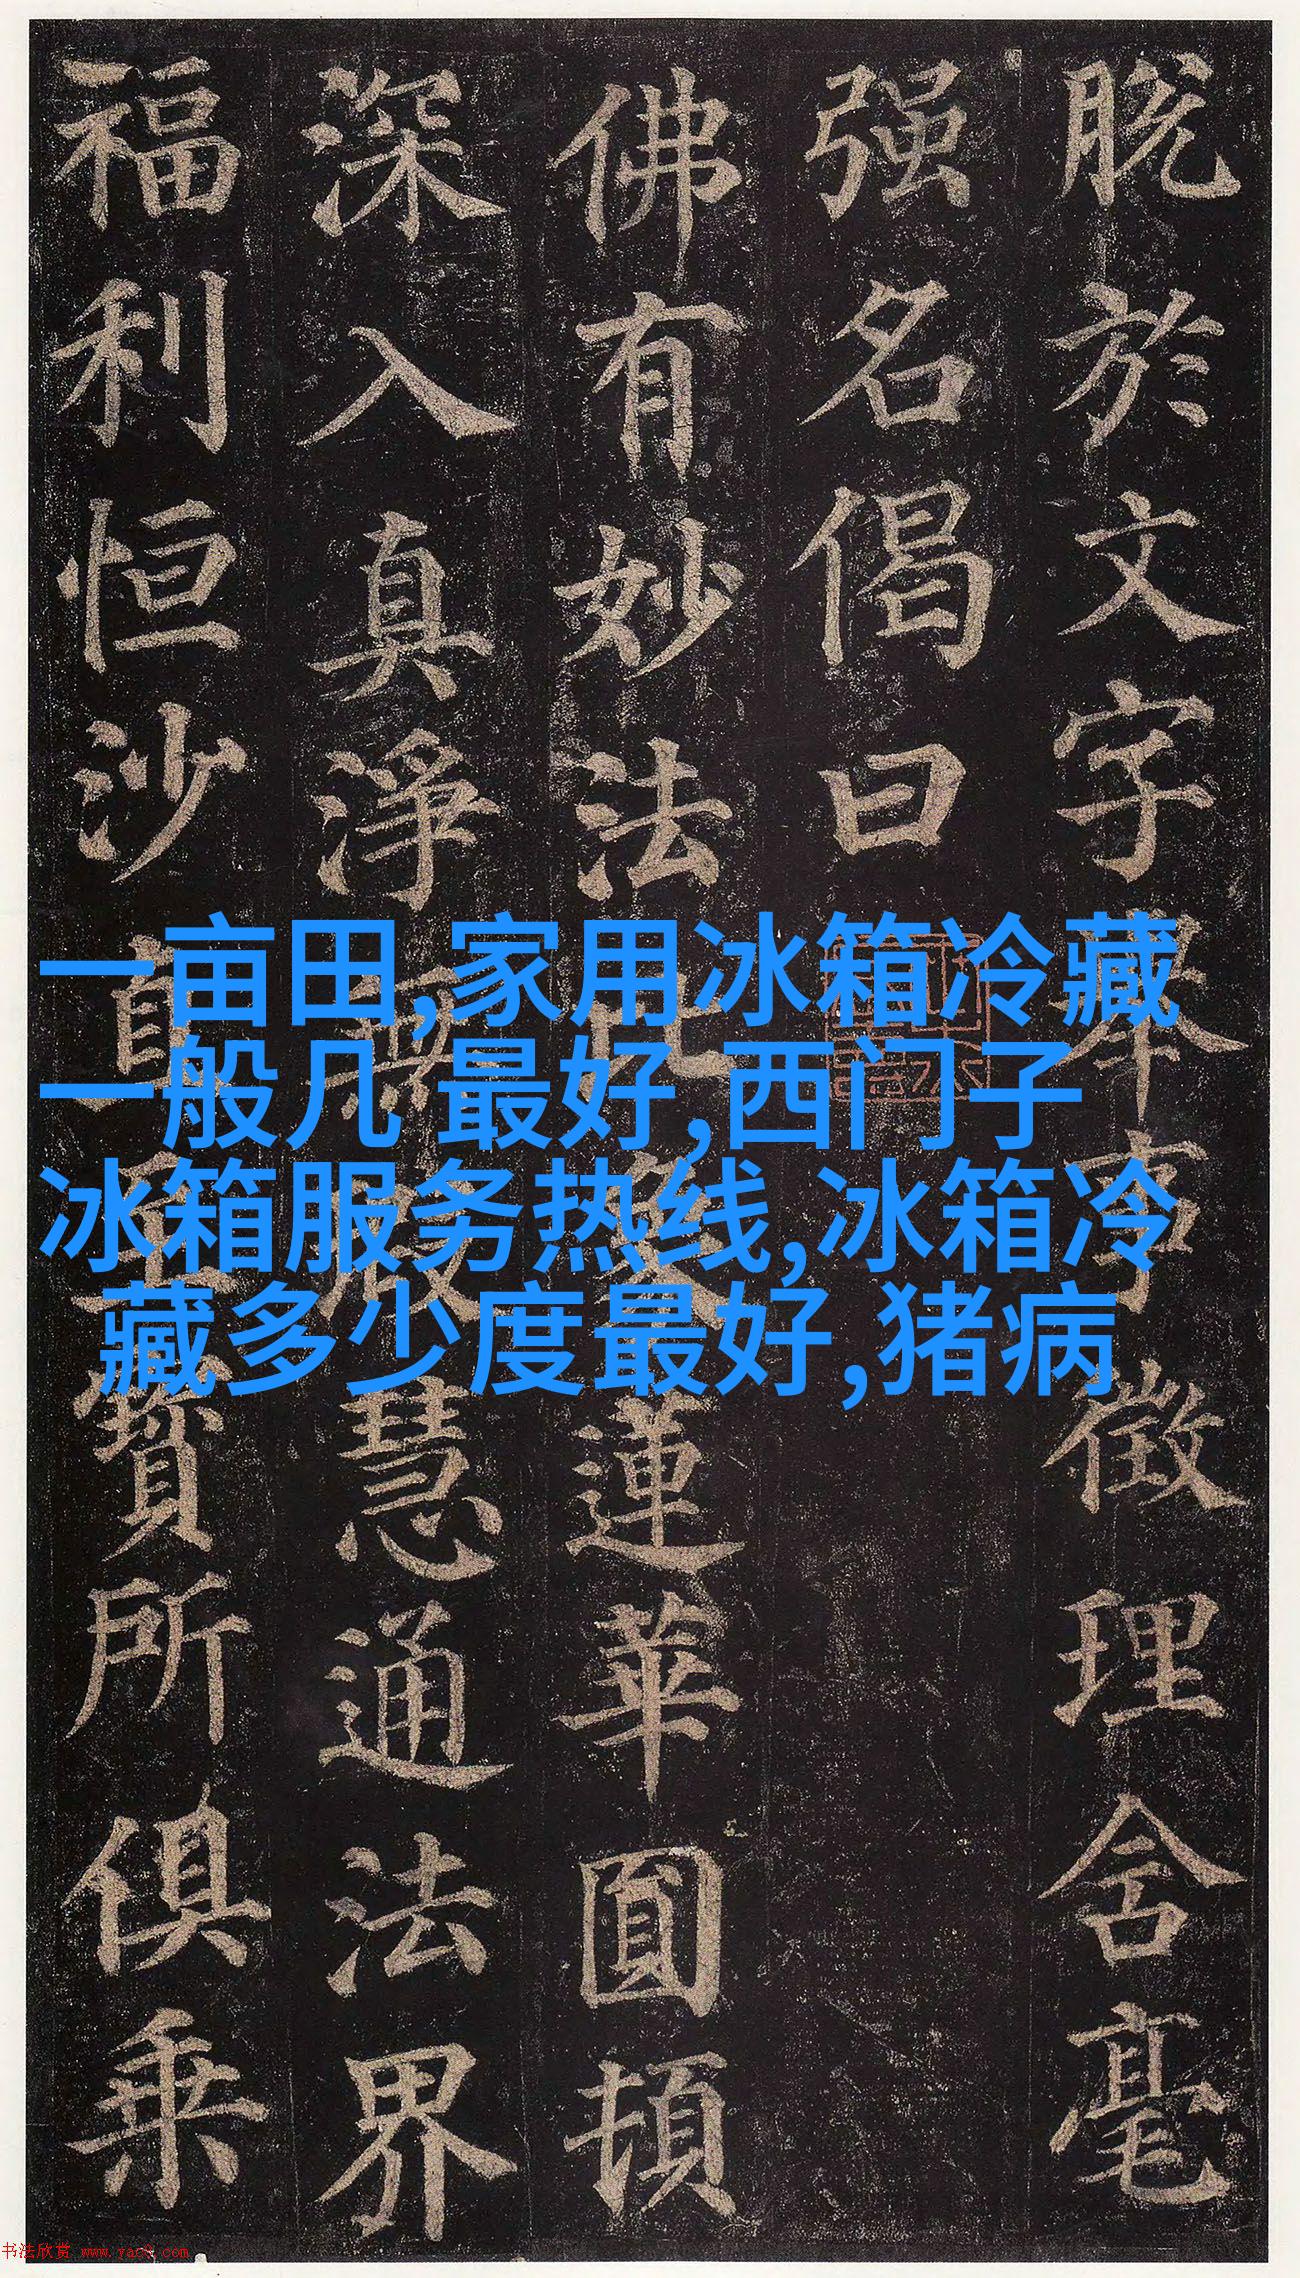 脱於文字舉事徵理含毫
强名偈曰
佛有妙法比象蓮華圓頓
深入真淨無瑕慧通法界
福利恒沙直至寶所俱乘
一亩田,家用冰箱冷藏
一般几 最好,西门子
冰箱服务热线,冰箱冷
藏多少度最好,猪病
书法欣赏 www.yac8.com